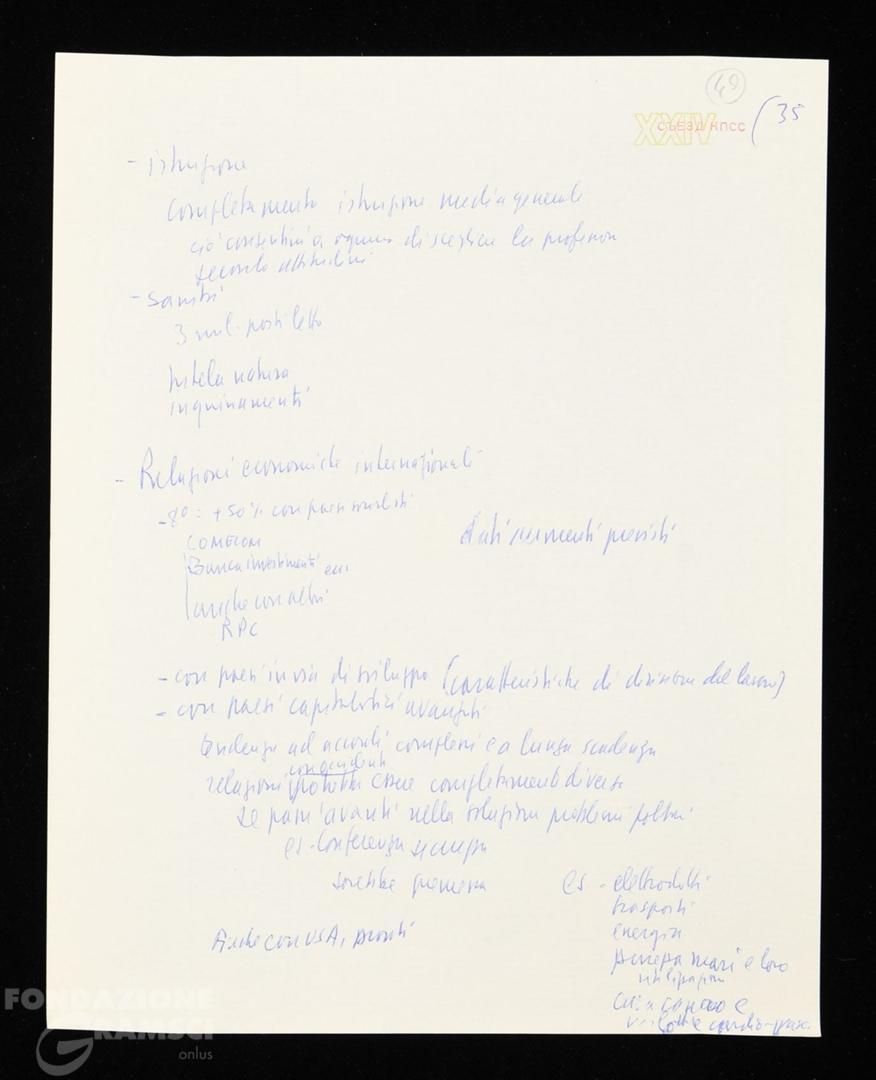 49
XXIV СЪЕЗД КПСС
35
- istruzione
completamento istruzione media generale
ciò consentirà a ognuno di scegliere la professione
secondo attitudini
- sanità
3 mil. posti letto
tutela natura
inquinamenti
- Relazioni economiche internazionali
- 8° : +50% con paesi socialisti
COMECON
Banca investimenti ecc
anche con altri
RPC
dati incrementi previsti
- con paesi in via di sviluppo (caratteristiche di divisione del lavoro)
- con paesi capitalistici avanzati
tendenza ad accordi complessi e a lunga scadenza
con occidenti
relazioni potrebbero essere completamente diverse
se passi avanti nella soluzione problemi politici
es. Conferenza
sarebbe
es - elettrodotti
trasporti
energia
pulizia mari e loro
utilizzazione
cura cancro e
malattie cardio-vasc.
Anche con USA, pronti
FONDAZIONE
GRAMSCI
onlus